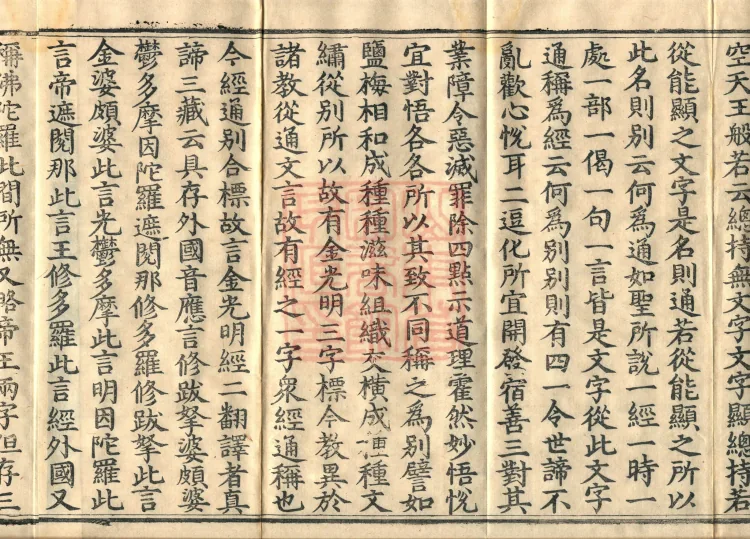 空天王般若云總持無文字文字顯總持若
從能顯之文字是名則通若從能顯之所以
此名則別云何爲通如聖所說一經一時一
處一部一偈一句一言皆是文字從此文字
通稱爲經云何爲別別則有四一令世諦不
亂歡心悅耳二逗化所宜開發宿善三對其
業障令惡滅罪除四點示道理霍然妙悟悅
宜對悟各各所以其致不同稱之為別譬如
鹽梅相和成種種滋味組織交橫成種種文
繡從別所以故有金光明三字標今教異於
諸教從通文言故有經之一字眾經通稱也
今經通別合標故言金光明經二翻譯者真
諦三藏云具存外國音應言修跋拏婆頗婆
鬱多摩因陀羅遮閱那修多羅修跋拏此言
金婆頗婆此言光鬱多摩此言明因陀羅此
言帝遮閱那此言王修多羅此言經外國又
彌佛陀羅此間所無又略帝王兩字但存三